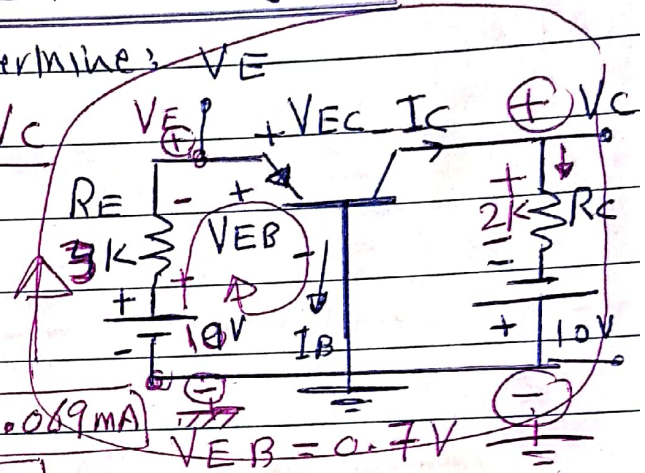 ermine; VE
VC
VE + + VEC - IC + VC
RE - + + 2K RC
3K VEB - -
+ + 10V IB + 10V
- - -
.069mA
VEB = 0.7V